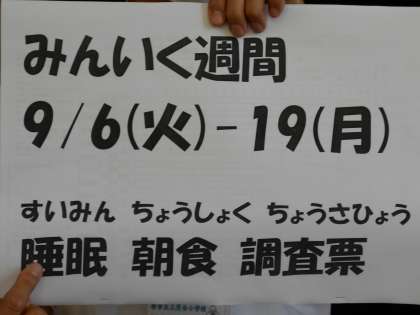 みんいく週間
9/6(火)-19(月)
すいみん ちょうしょく ちょうさひょう
睡眠 朝食 調査票